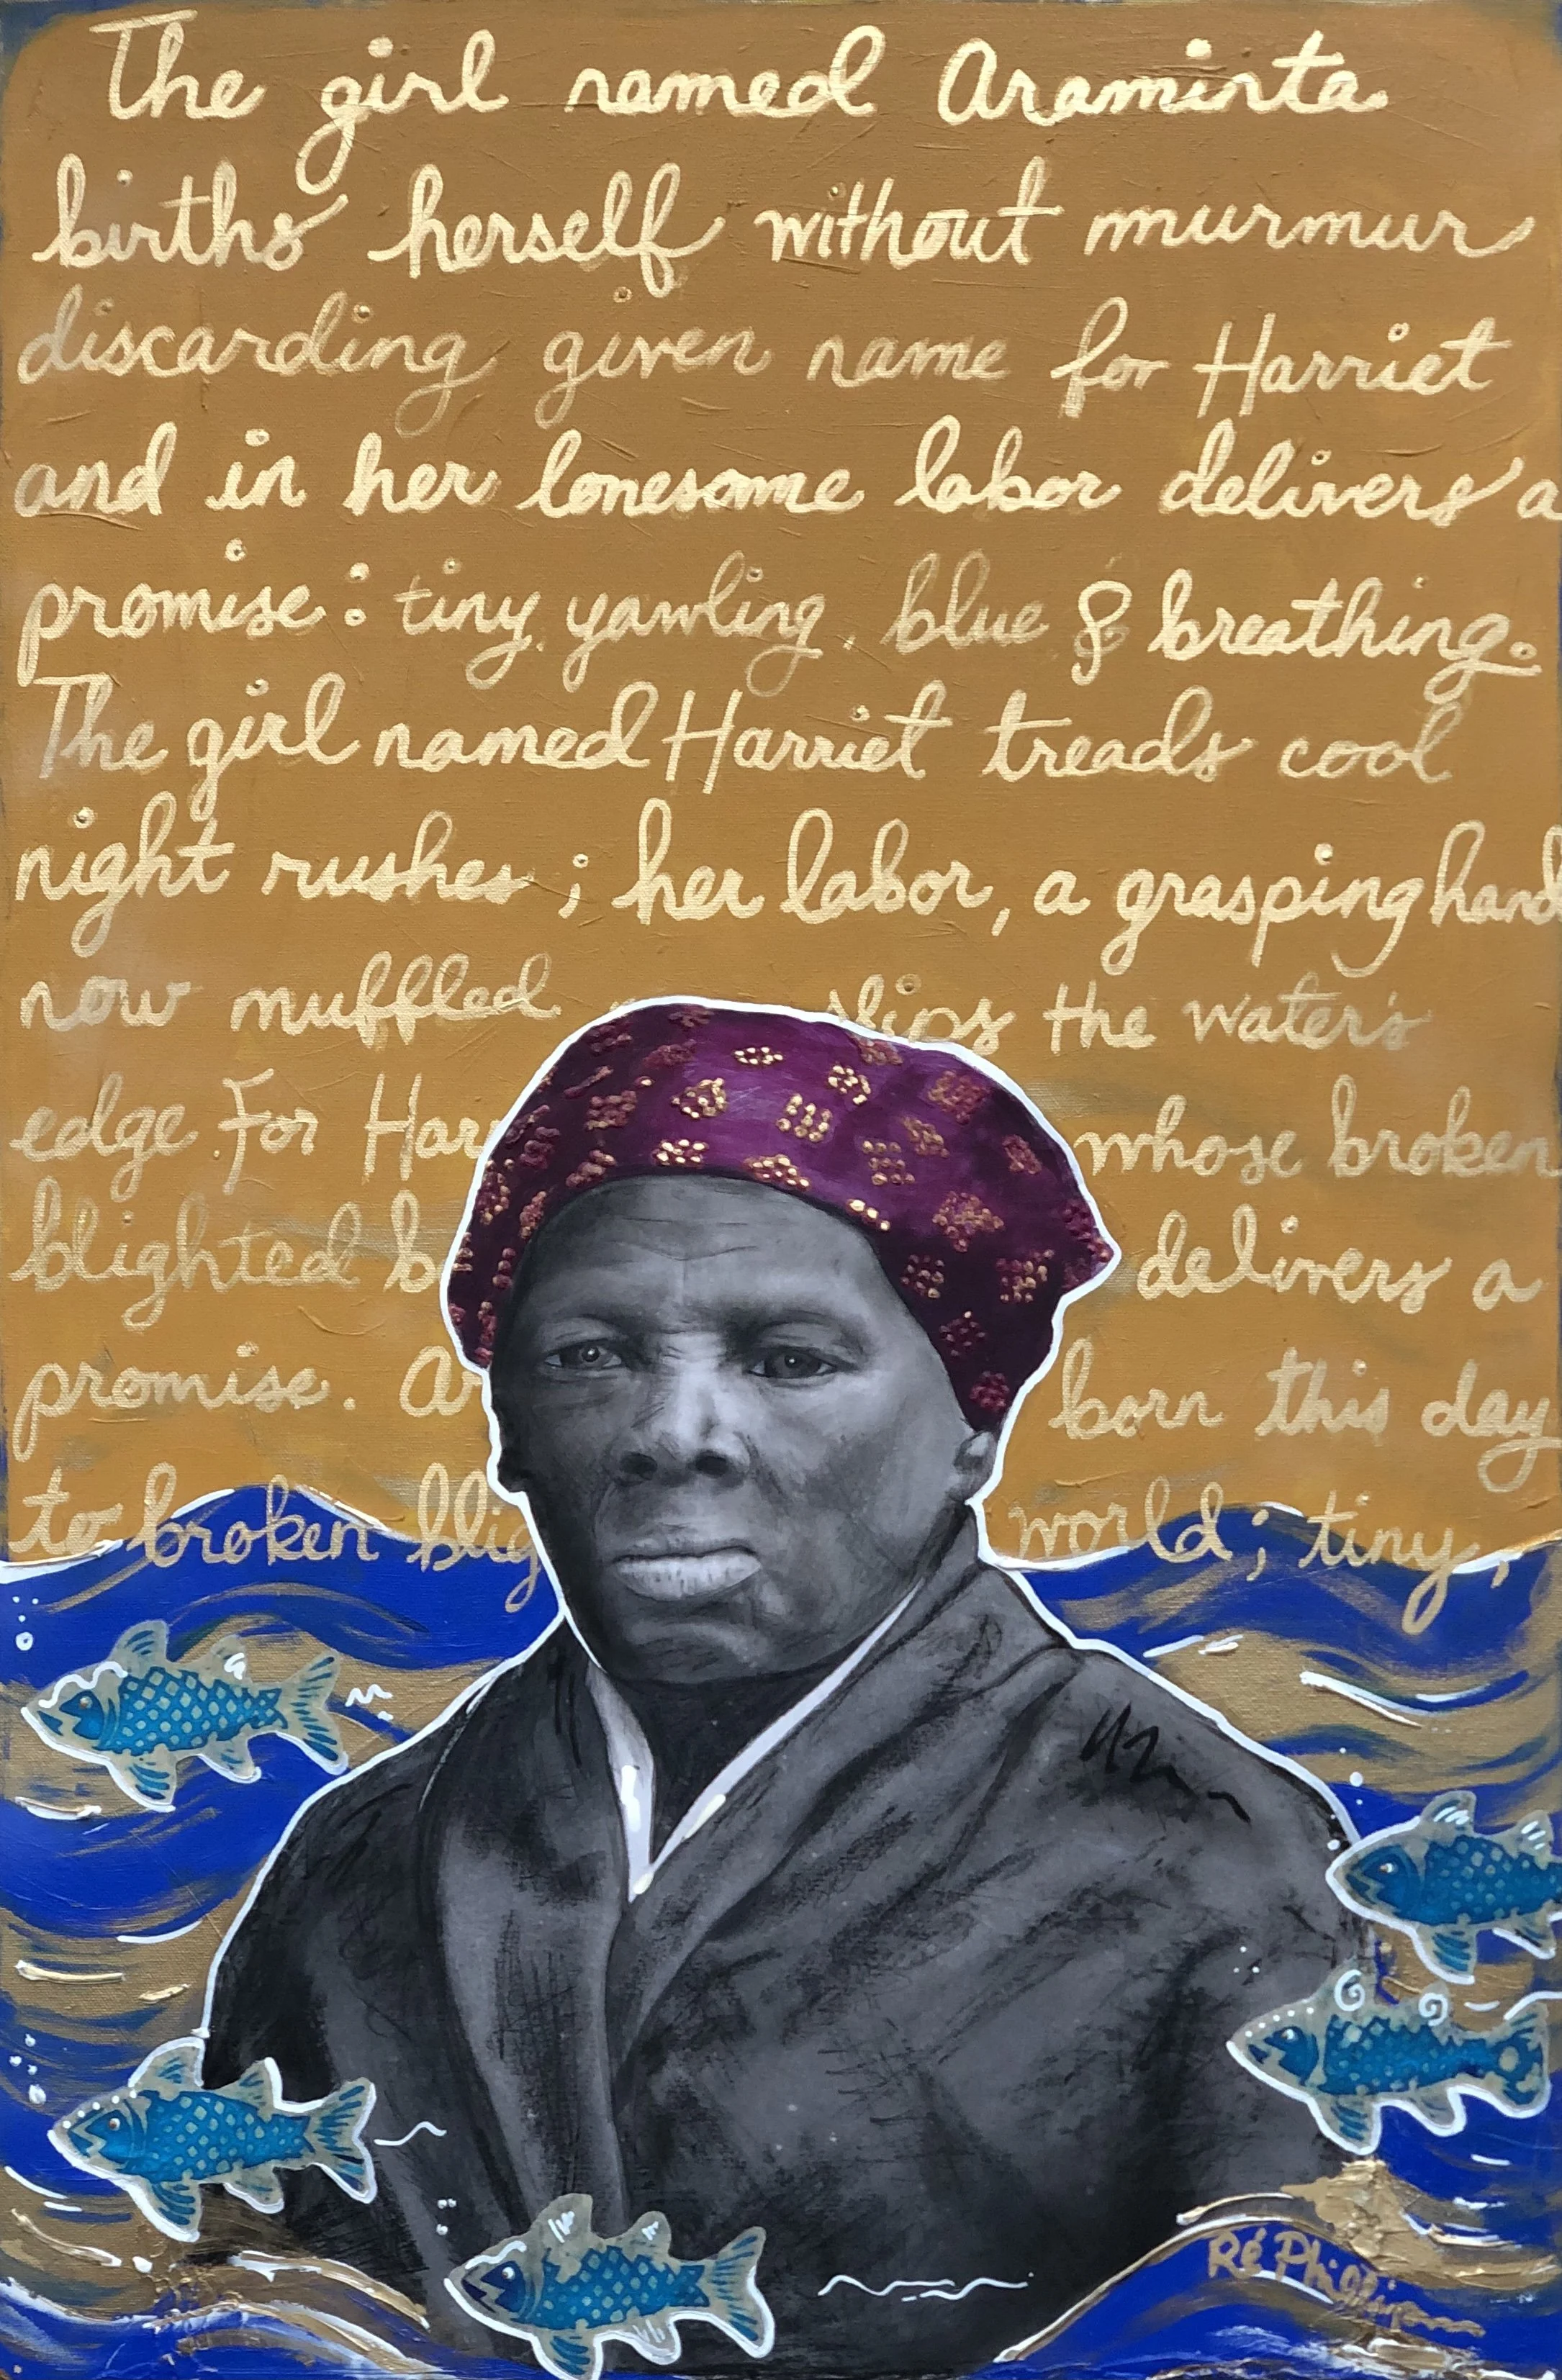 The girl named Araminta
births herself without murmur
discarding given name for Harriet
and in her lonesome labor delivers a
promise: tiny, yawling, blue & breathing.
The girl named Harriet treads cool
night rushes; her labor, a grasping hand
now muffled slips the water's
edge. For Har whose broken
blighted b delivers a
promise. Ar born this day
to broken blig world; tiny,
Ré Phillips